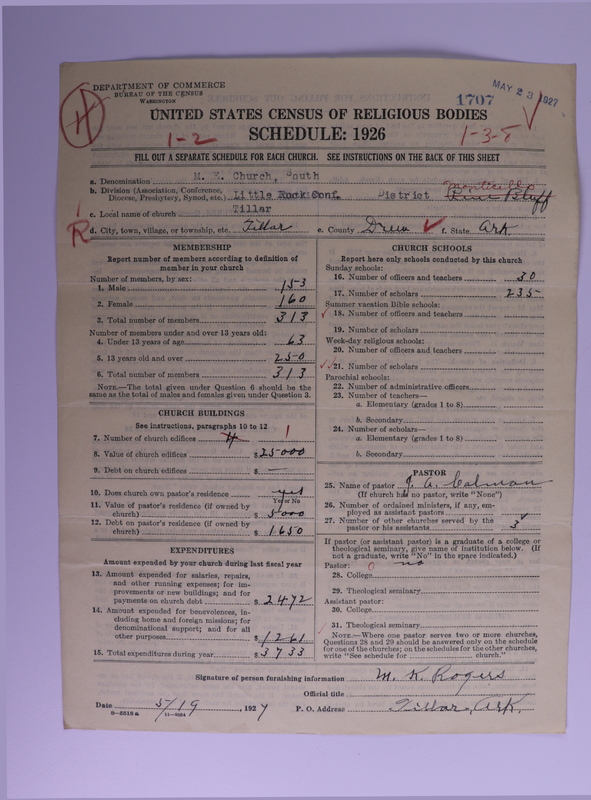 DEPARTMENT OF COMMERCE
BUREAU OF THE CENSUS
WASHINGTON
4
1707
MAY 23 1927
UNITED STATES CENSUS OF RELIGIOUS BODIES
1-2 SCHEDULE: 1926 1-3-8
FILL OUT A SEPARATE SCHEDULE FOR EACH CHURCH. SEE INSTRUCTIONS ON THE BACK OF THIS SHEET
a. Denomination M. E. Church, South
b. Division (Association, Conference, Diocese, Presbytery, Synod, etc.) Little Rock Conf. District Monticello Pine Bluff
c. Local name of church Tillar
R
d. City, town, village, or township, etc. Tillar e. County Drew f. State Ark
MEMBERSHIP
Report number of members according to definition of
member in your church
Number of members, by sex:
1. Male 153
2. Female 160
3. Total number of members 313
Number of members under and over 13 years old:
4. Under 13 years of age 63
5. 13 years old and over 250
6. Total number of members 313
NOTE.—The total given under Question 6 should be the
same as the total of males and females given under Question 3.
CHURCH BUILDINGS
See instructions, paragraphs 10 to 12
7. Number of church edifices 4 1
8. Value of church edifices $25000
9. Debt on church edifices $ —
10. Does church own pastor's residence yes
Yes or No
11. Value of pastor's residence (if owned by
church) $5000
12. Debt on pastor's residence (if owned by
church) $1650
EXPENDITURES
Amount expended by your church during last fiscal year
13. Amount expended for salaries, repairs,
and other running expenses; for im-
provements or new buildings; and for
payments on church debt $2472
14. Amount expended for benevolences, in-
cluding home and foreign missions; for
denominational support; and for all
other purposes $1261
15. Total expenditures during year $3733
CHURCH SCHOOLS
Report here only schools conducted by this church
Sunday schools:
16. Number of officers and teachers 30
17. Number of scholars 235
Summer vacation Bible schools:
18. Number of officers and teachers
19. Number of scholars
Week-day religious schools:
20. Number of officers and teachers
21. Number of scholars
Parochial schools:
22. Number of administrative officers
23. Number of teachers—
a. Elementary (grades 1 to 8)
b. Secondary
24. Number of scholars—
a. Elementary (grades 1 to 8)
b. Secondary
PASTOR
25. Name of pastor J. A.
(If church has no pastor, write "None")
26. Number of ordained ministers, if any, em-
ployed as assistant pastors
27. Number of other churches served by the
pastor or his assistants 3
If pastor (or assistant pastor) is a graduate of a college or
theological seminary, give name of institution below. (If
not a graduate, write "No" in the space indicated.)
Pastor: 0 no
28. College
29. Theological seminary
Assistant pastor:
30. College
31. Theological seminary
NOTE.—Where one pastor serves two or more churches,
Questions 28 and 29 should be answered only on the schedule
for one of the churches; on the schedules for the other churches,
write "See schedule for church."
Signature of person furnishing information M. K. Rogers
Official title
Date 5/19, 1927 P. O. Address Tillar, Ark.
8-5518a 11-9554